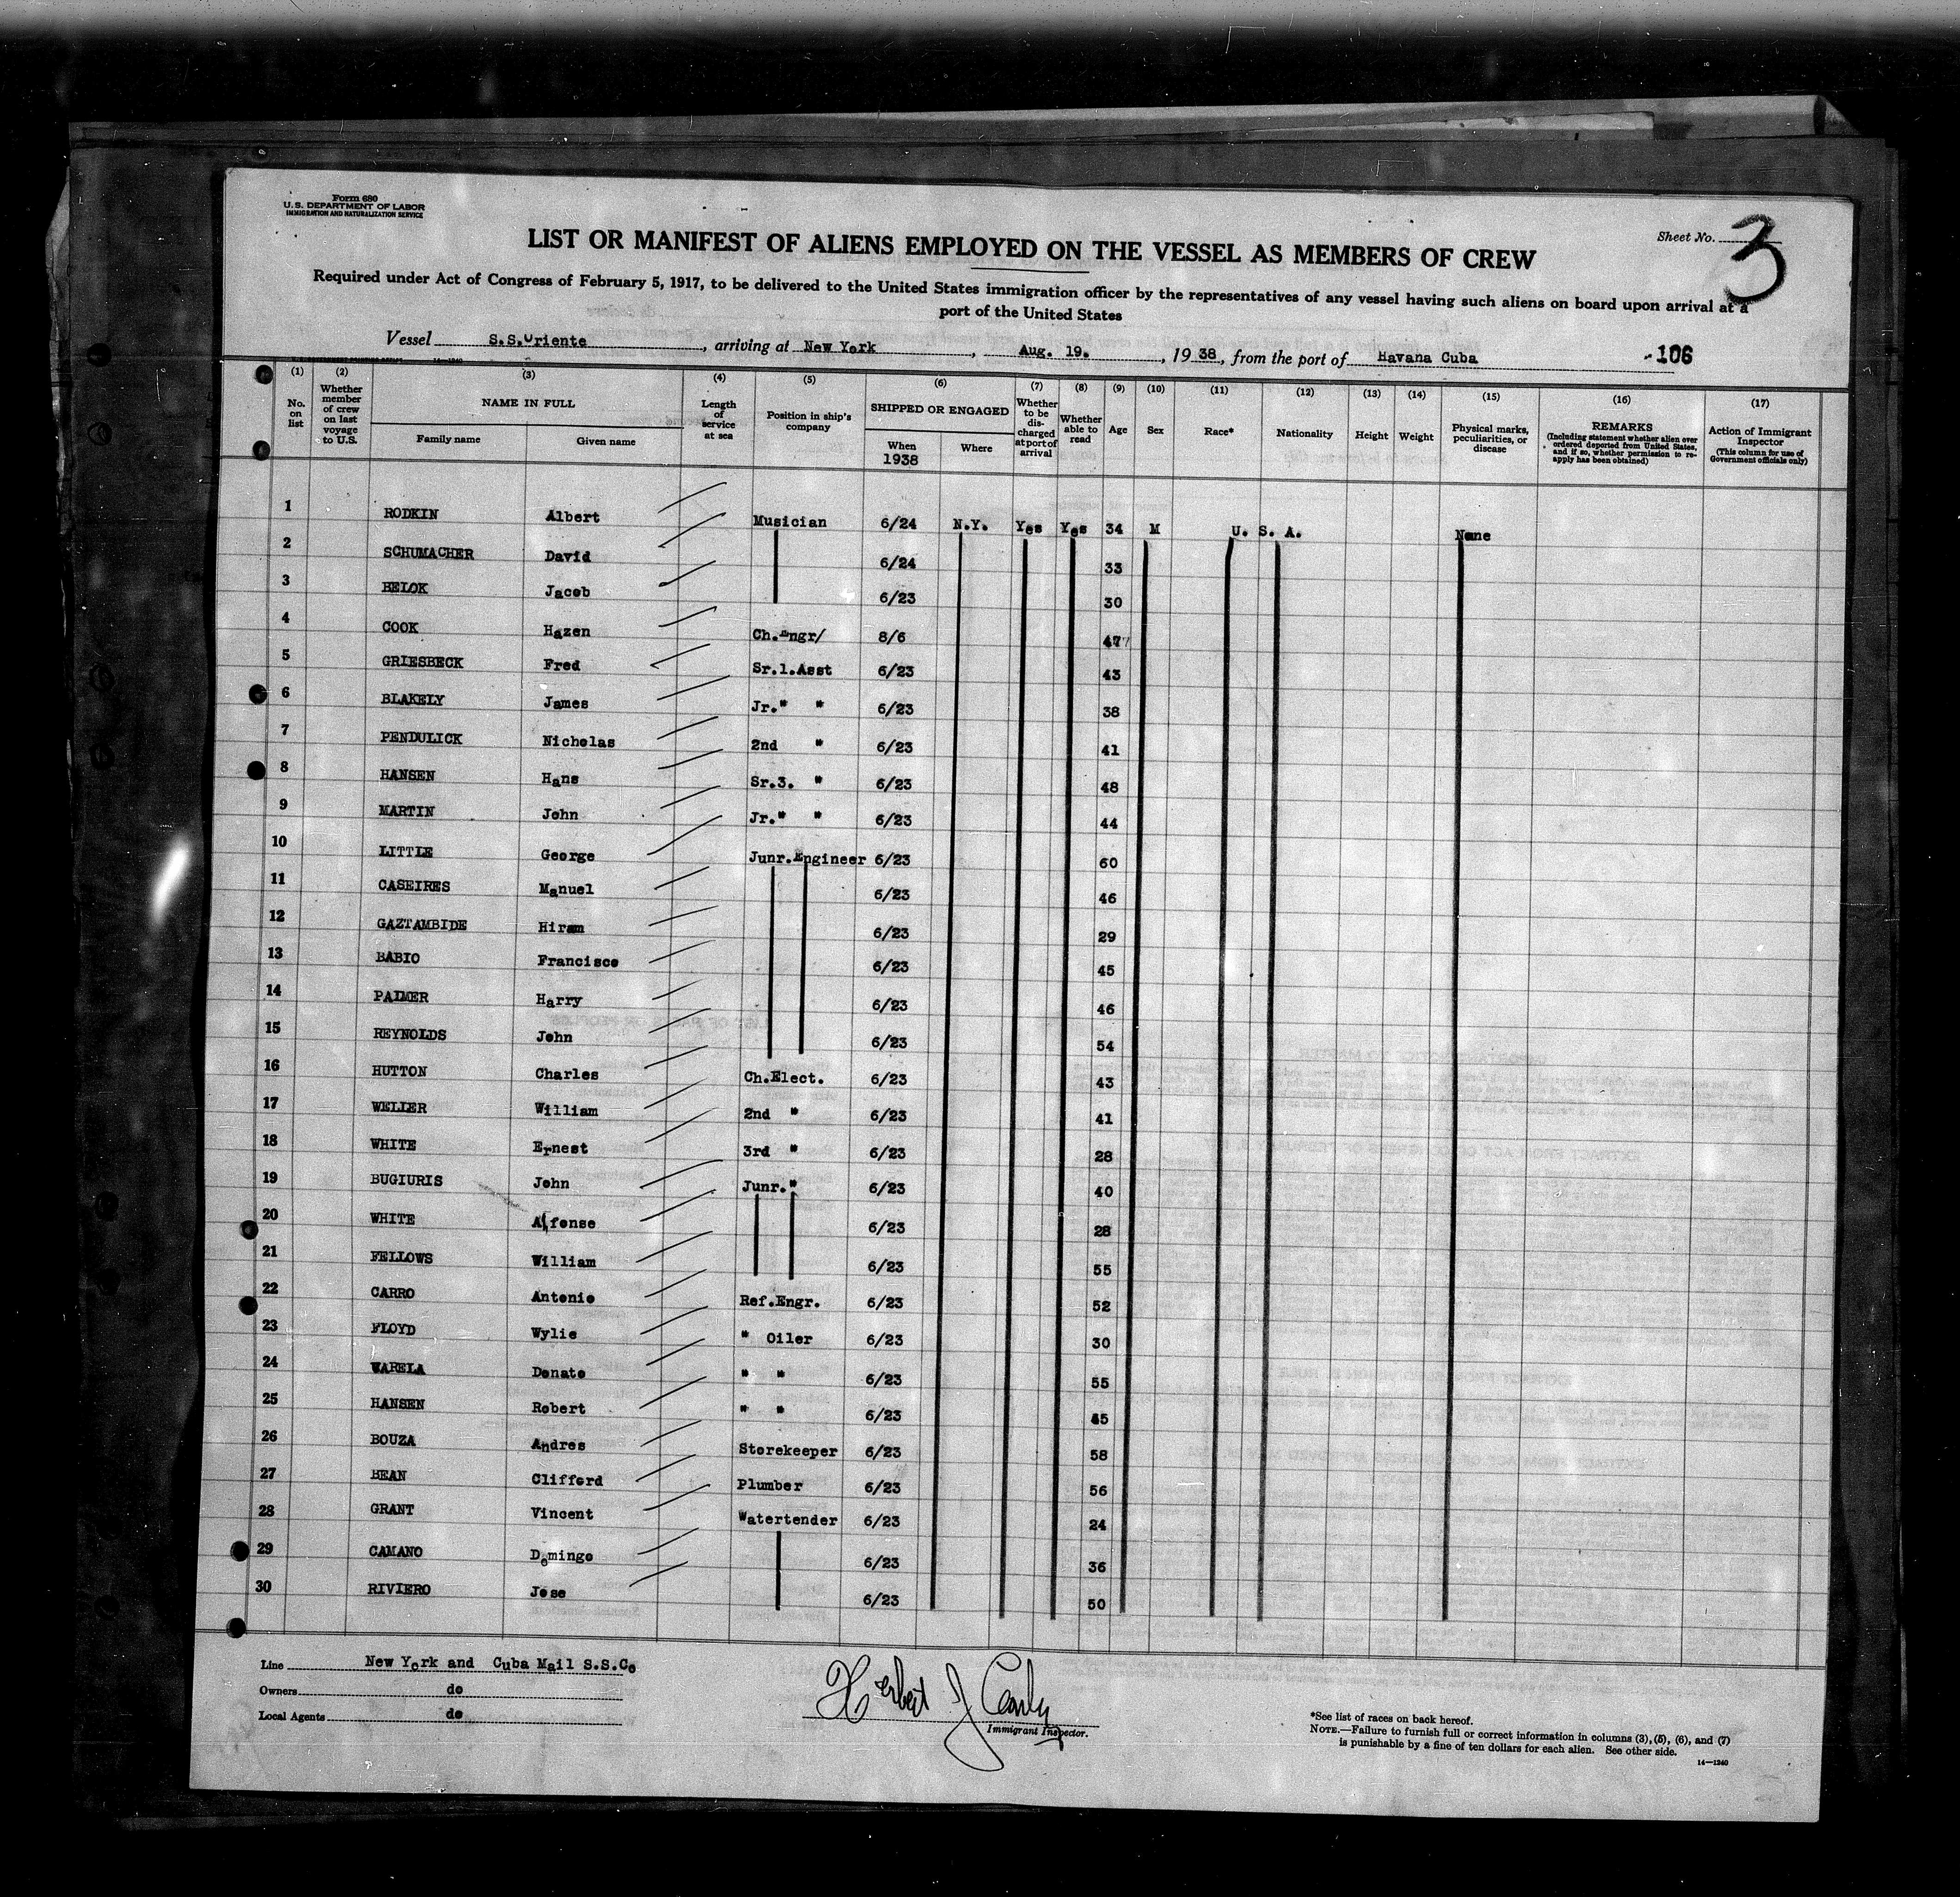 Form 680
U.S. DEPARTMENT OF LABOR
IMMIGRATION AND NATURALIZATION SERVICE
Sheet No. 3
LIST OR MANIFEST OF ALIENS EMPLOYED ON THE VESSEL AS MEMBERS OF CREW
Required under Act of Congress of February 5, 1917, to be delivered to the United States immigration officer by the representatives of any vessel having such aliens on board upon arrival at a
port of the United States
Vessel S.S.Oriente, arriving at New York, Aug. 19., 1938, from the port of Havana Cuba -106
14—1240
(1) (2) (3) (4) (5) (6) (7) (8) (9) (10) (11) (12) (13) (14) (15) (16) (17)
No. on list
Whether member of crew on last voyage to U.S.
NAME IN FULL
Family name Given name
Length of service at sea
Position in ship's company
SHIPPED OR ENGAGED
When 1938 Where
Whether to be discharged at port of arrival
Whether able to read
Age
Sex
Race*
Nationality
Height
Weight
Physical marks, peculiarities, or disease
REMARKS
(Including statement whether alien ever ordered deported from United States, and if so, whether permission to reapply has been obtained)
Action of Immigrant Inspector
(This column for use of Government officials only)
1 RODKIN Albert Musician 6/24 N.Y. Yes Yes 34 M U. S. A. None
2 SCHUMACHER David 6/24 33
3 BELOK Jacob 6/23 30
4 COOK Hazen Ch.Engr/ 8/6 47
5 GRIESBECK Fred Sr.1.Asst 6/23 43
6 BLAKELY James Jr." " 6/23 38
7 PENDULICK Nicholas 2nd " 6/23 41
8 HANSEN Hans Sr.3. " 6/23 48
9 MARTIN John Jr." " 6/23 44
10 LITTLE George Junr.Engineer 6/23 60
11 CASEIRES Manuel 6/23 46
12 GAZTAMBIDE Hiram 6/23 29
13 BABIO Francisco 6/23 45
14 PALMER Harry 6/23 46
15 REYNOLDS John 6/23 54
16 HUTTON Charles Ch.Elect. 6/23 43
17 WELLER William 2nd " 6/23 41
18 WHITE Ernest 3rd " 6/23 28
19 BUGIURIS John Junr." 6/23 40
20 WHITE Alfonse 6/23 28
21 FELLOWS William 6/23 55
22 CARRO Antonio Ref.Engr. 6/23 52
23 FLOYD Wylie " Oiler 6/23 30
24 VARELA Donato " " 6/23 55
25 HANSEN Robert " " 6/23 45
26 BOUZA Andres Storekeeper 6/23 58
27 BEAN Clifford Plumber 6/23 56
28 GRANT Vincent Watertender 6/23 24
29 CAMANO Domingo 6/23 36
30 RIVIERO Jose 6/23 50
Line New York and Cuba Mail S.S.Co
Owners do
Local Agents do
Herbert J
Immigrant Inspector.
*See list of races on back hereof.
NOTE.—Failure to furnish full or correct information in columns (3), (5), (6), and (7)
is punishable by a fine of ten dollars for each alien. See other side.
14—1240